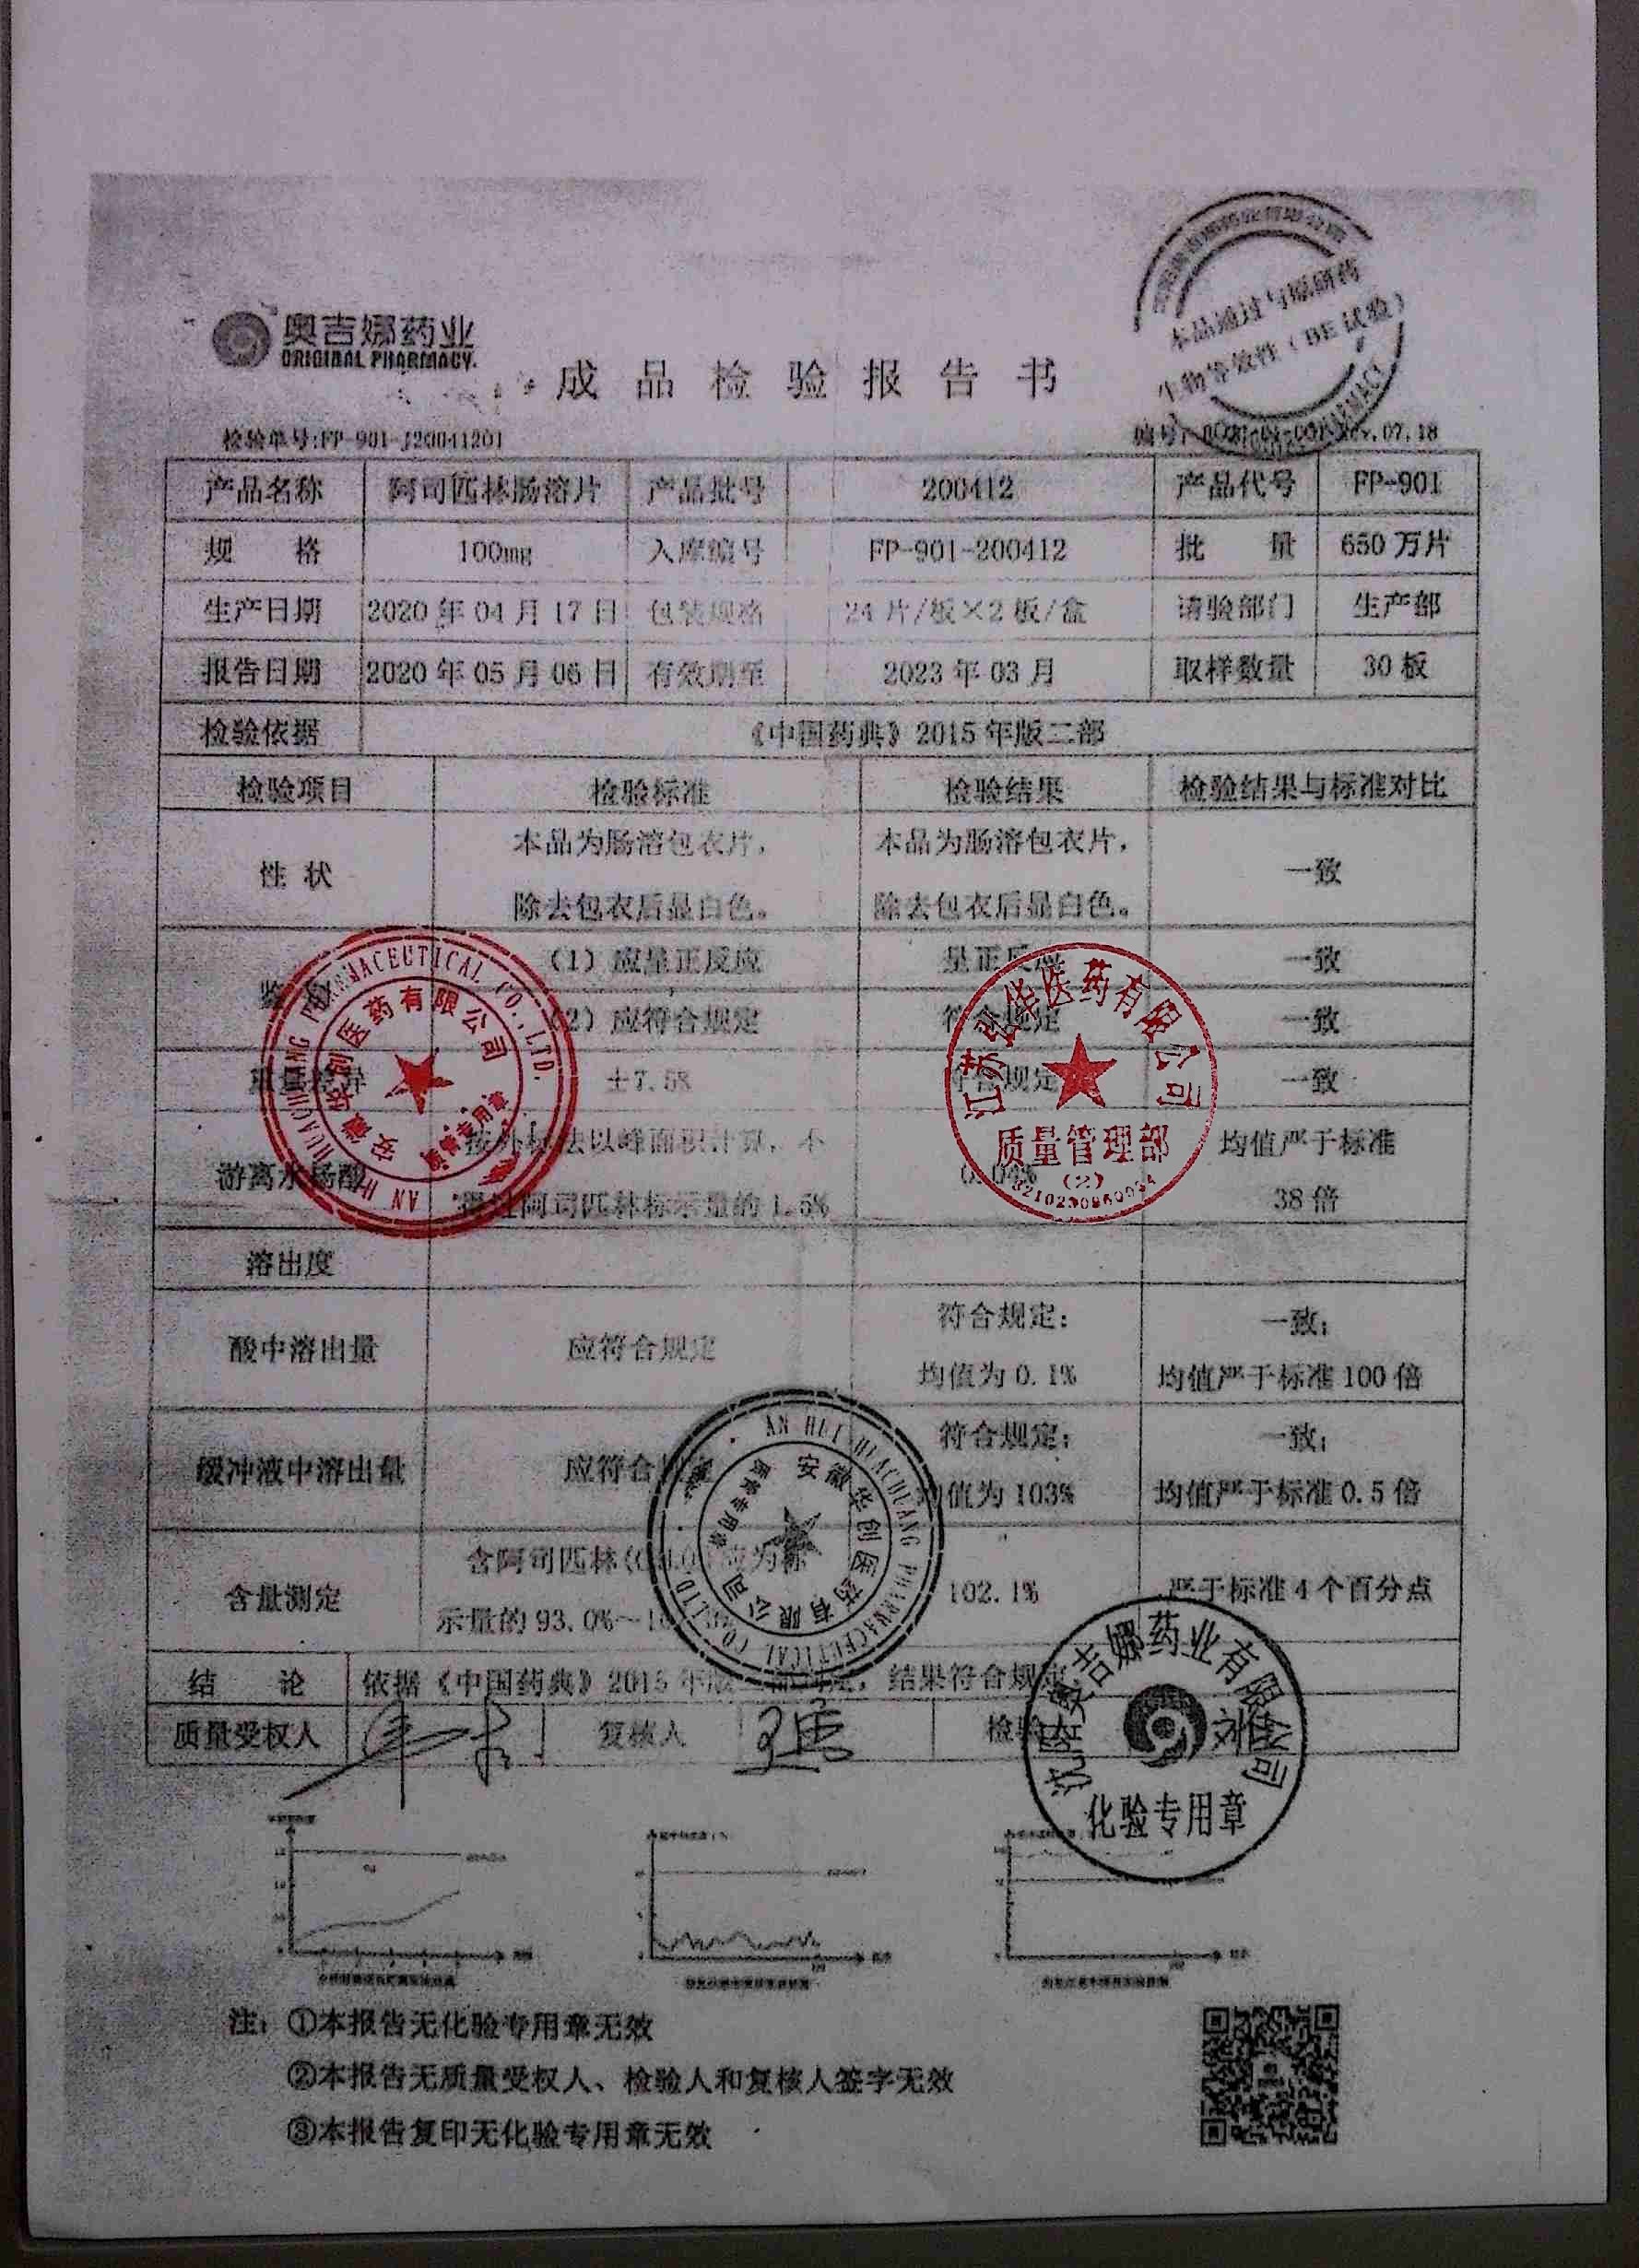 奥吉娜药业
ORIGINAL PHARMACY.
本品通过与原研药
生物等效性（BE试验）
成品检验报告书
检验单号:FP-901-120041201
产品名称 阿司匹林肠溶片 产品批号 200412 产品代号 FP-901
规格 100mg 入库编号 FP-901-200412 批量 650万片
生产日期 2020年04月17日 包装规格 24片/板×2板/盒 请验部门 生产部
报告日期 2020年05月06日 有效期至 2023年03月 取样数量 30板
检验依据 《中国药典》2015年版二部
检验项目 检验标准 检验结果 检验结果与标准对比
性状 本品为肠溶包衣片， 本品为肠溶包衣片， 一致
除去包衣后显白色。 除去包衣后显白色。
（1）应呈正反应 呈正反应 一致
（2）应符合规定 符合规定 一致
±7.5% 符合规定 一致
游离水杨酸 法以峰面积计算，不 均值严于标准
阿司匹林标示量的1.5% 38倍
溶出度
酸中溶出量 应符合规定 符合规定； 一致；
均值为0.1% 均值严于标准100倍
缓冲液中溶出量 应符合 符合规定； 一致；
均值为103% 均值严于标准0.5倍
含量测定 含阿司匹林 应为标 102.1% 严于标准4个百分点
示量的93.0%～
结论 依据《中国药典》2015年版 结果符合规定
质量受权人 复核人 检验
AN HUI HUACHUANG PHARMACEUTICAL CO.,LTD.
安徽华创医药有限公司
质管专用章
江苏弘华医药有限公司
质量管理部
（2）
AN HUI HUACHUANG PHARMACEUTICAL CO.,LTD.
安徽华创医药有限公司
质管专用章
沈阳奥吉娜药业有限公司
化验专用章
注：①本报告无化验专用章无效
②本报告无质量受权人、检验人和复核人签字无效
③本报告复印无化验专用章无效